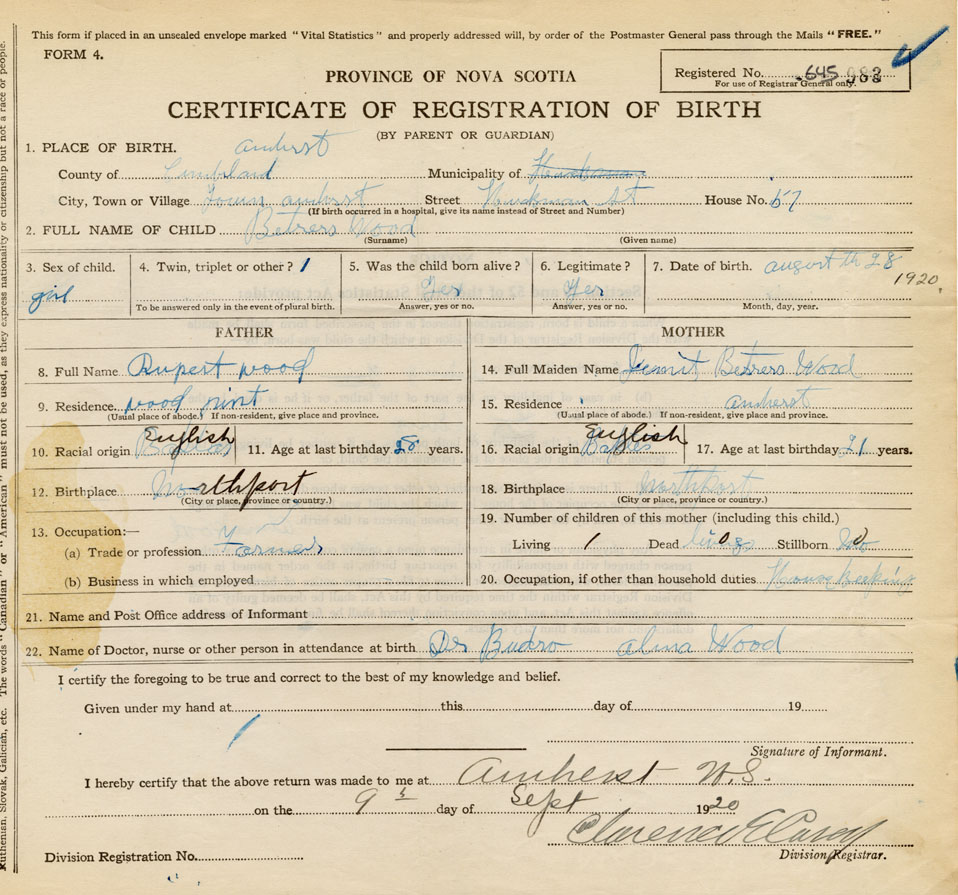 This form if placed in an unsealed envelope marked "Vital Statistics" and properly addressed will, by order of the Postmaster General pass through the Mails "FREE."
FORM 4.
Registered No. 645
For use of Registrar General only.
PROVINCE OF NOVA SCOTIA
CERTIFICATE OF REGISTRATION OF BIRTH
(BY PARENT OR GUARDIAN)
1. PLACE OF BIRTH. Amherst
County of Municipality of
City, Town or Village Town amherst Street St House No. 57
(If birth occurred in a hospital, give its name instead of Street and Number)
2. FULL NAME OF CHILD Betrers Wood
(Surname) (Given name)
3. Sex of child. girl
4. Twin, triplet or other? 1
To be answered only in the event of plural birth.
5. Was the child born alive? Yes
Answer, yes or no.
6. Legitimate? Yes
Answer, yes or no.
7. Date of birth. august th 28 1920
Month, day, year.
FATHER
8. Full Name Rupert wood
9. Residence. wood
(Usual place of abode.) If non-resident, give place and province.
10. Racial origin English 11. Age at last birthday years.
12. Birthplace Northport
(City or place, province or country.)
13. Occupation:—
(a) Trade or profession Farmer
(b) Business in which employed
MOTHER
14. Full Maiden Name Betrers Wood
15. Residence amherst
(Usual place of abode.) If non-resident, give place and province.
16. Racial origin English 17. Age at last birthday 21 years.
18. Birthplace NorthPort
(City or place, province or country.)
19. Number of children of this mother (including this child.)
Living 1 Dead 0 Stillborn 0
20. Occupation, if other than household duties House Keeping
21. Name and Post Office address of Informant
22. Name of Doctor, nurse or other person in attendance at birth Dr Budro alma Wood
I certify the foregoing to be true and correct to the best of my knowledge and belief.
Given under my hand at this day of 19
Signature of Informant.
I hereby certify that the above return was made to me at Amherst N.S.
on the 9th day of Sept 1920
Clarence E Casey
Division Registrar.
Division Registration No.
Ruthenian, Slovak, Galician, etc. The words "Canadian" or "American" must not be used, as they express nationality or citizenship but not a race or people.